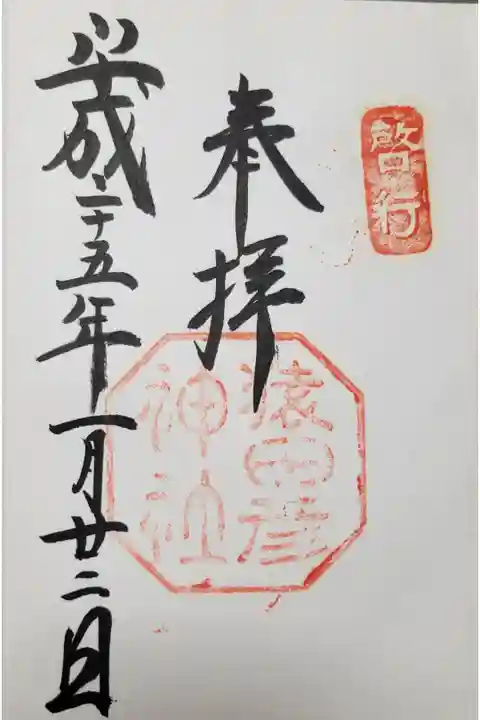 啟行
奉拝
猿田彦
神社
平成二十五年一月廿二日